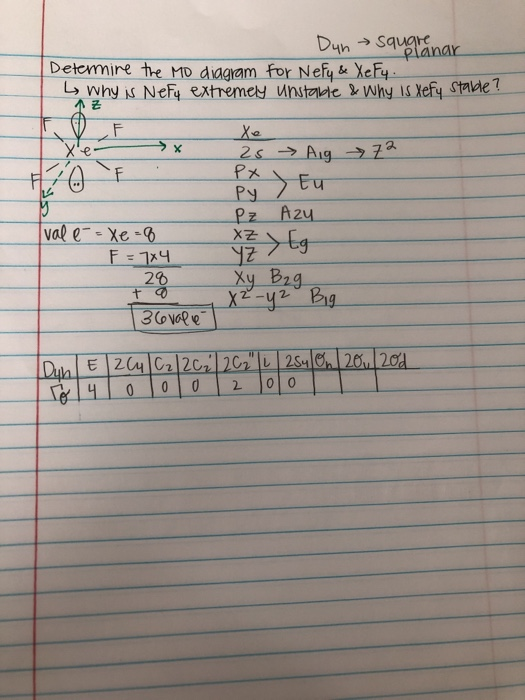 D4h → square
planar
Determine the MO diagram for NeF4 & XeF4.
↳ why is NeF4 extremely unstable & why is XeF4 stable?
z
F F
Xe → x
F F
y
Xe
2s → A1g → z²
Px
Py > Eu
Pz A2u
xz
yz > Eg
xy B2g
x²-y² B1g
val e⁻ = Xe = 8
F = 7x4
28
+ 8
36 val e⁻
D4h E 2C4 C2 2C2' 2C2'' i 2S4 σh 2σv 2σd
Γσ 4 0 0 0 2 0 0